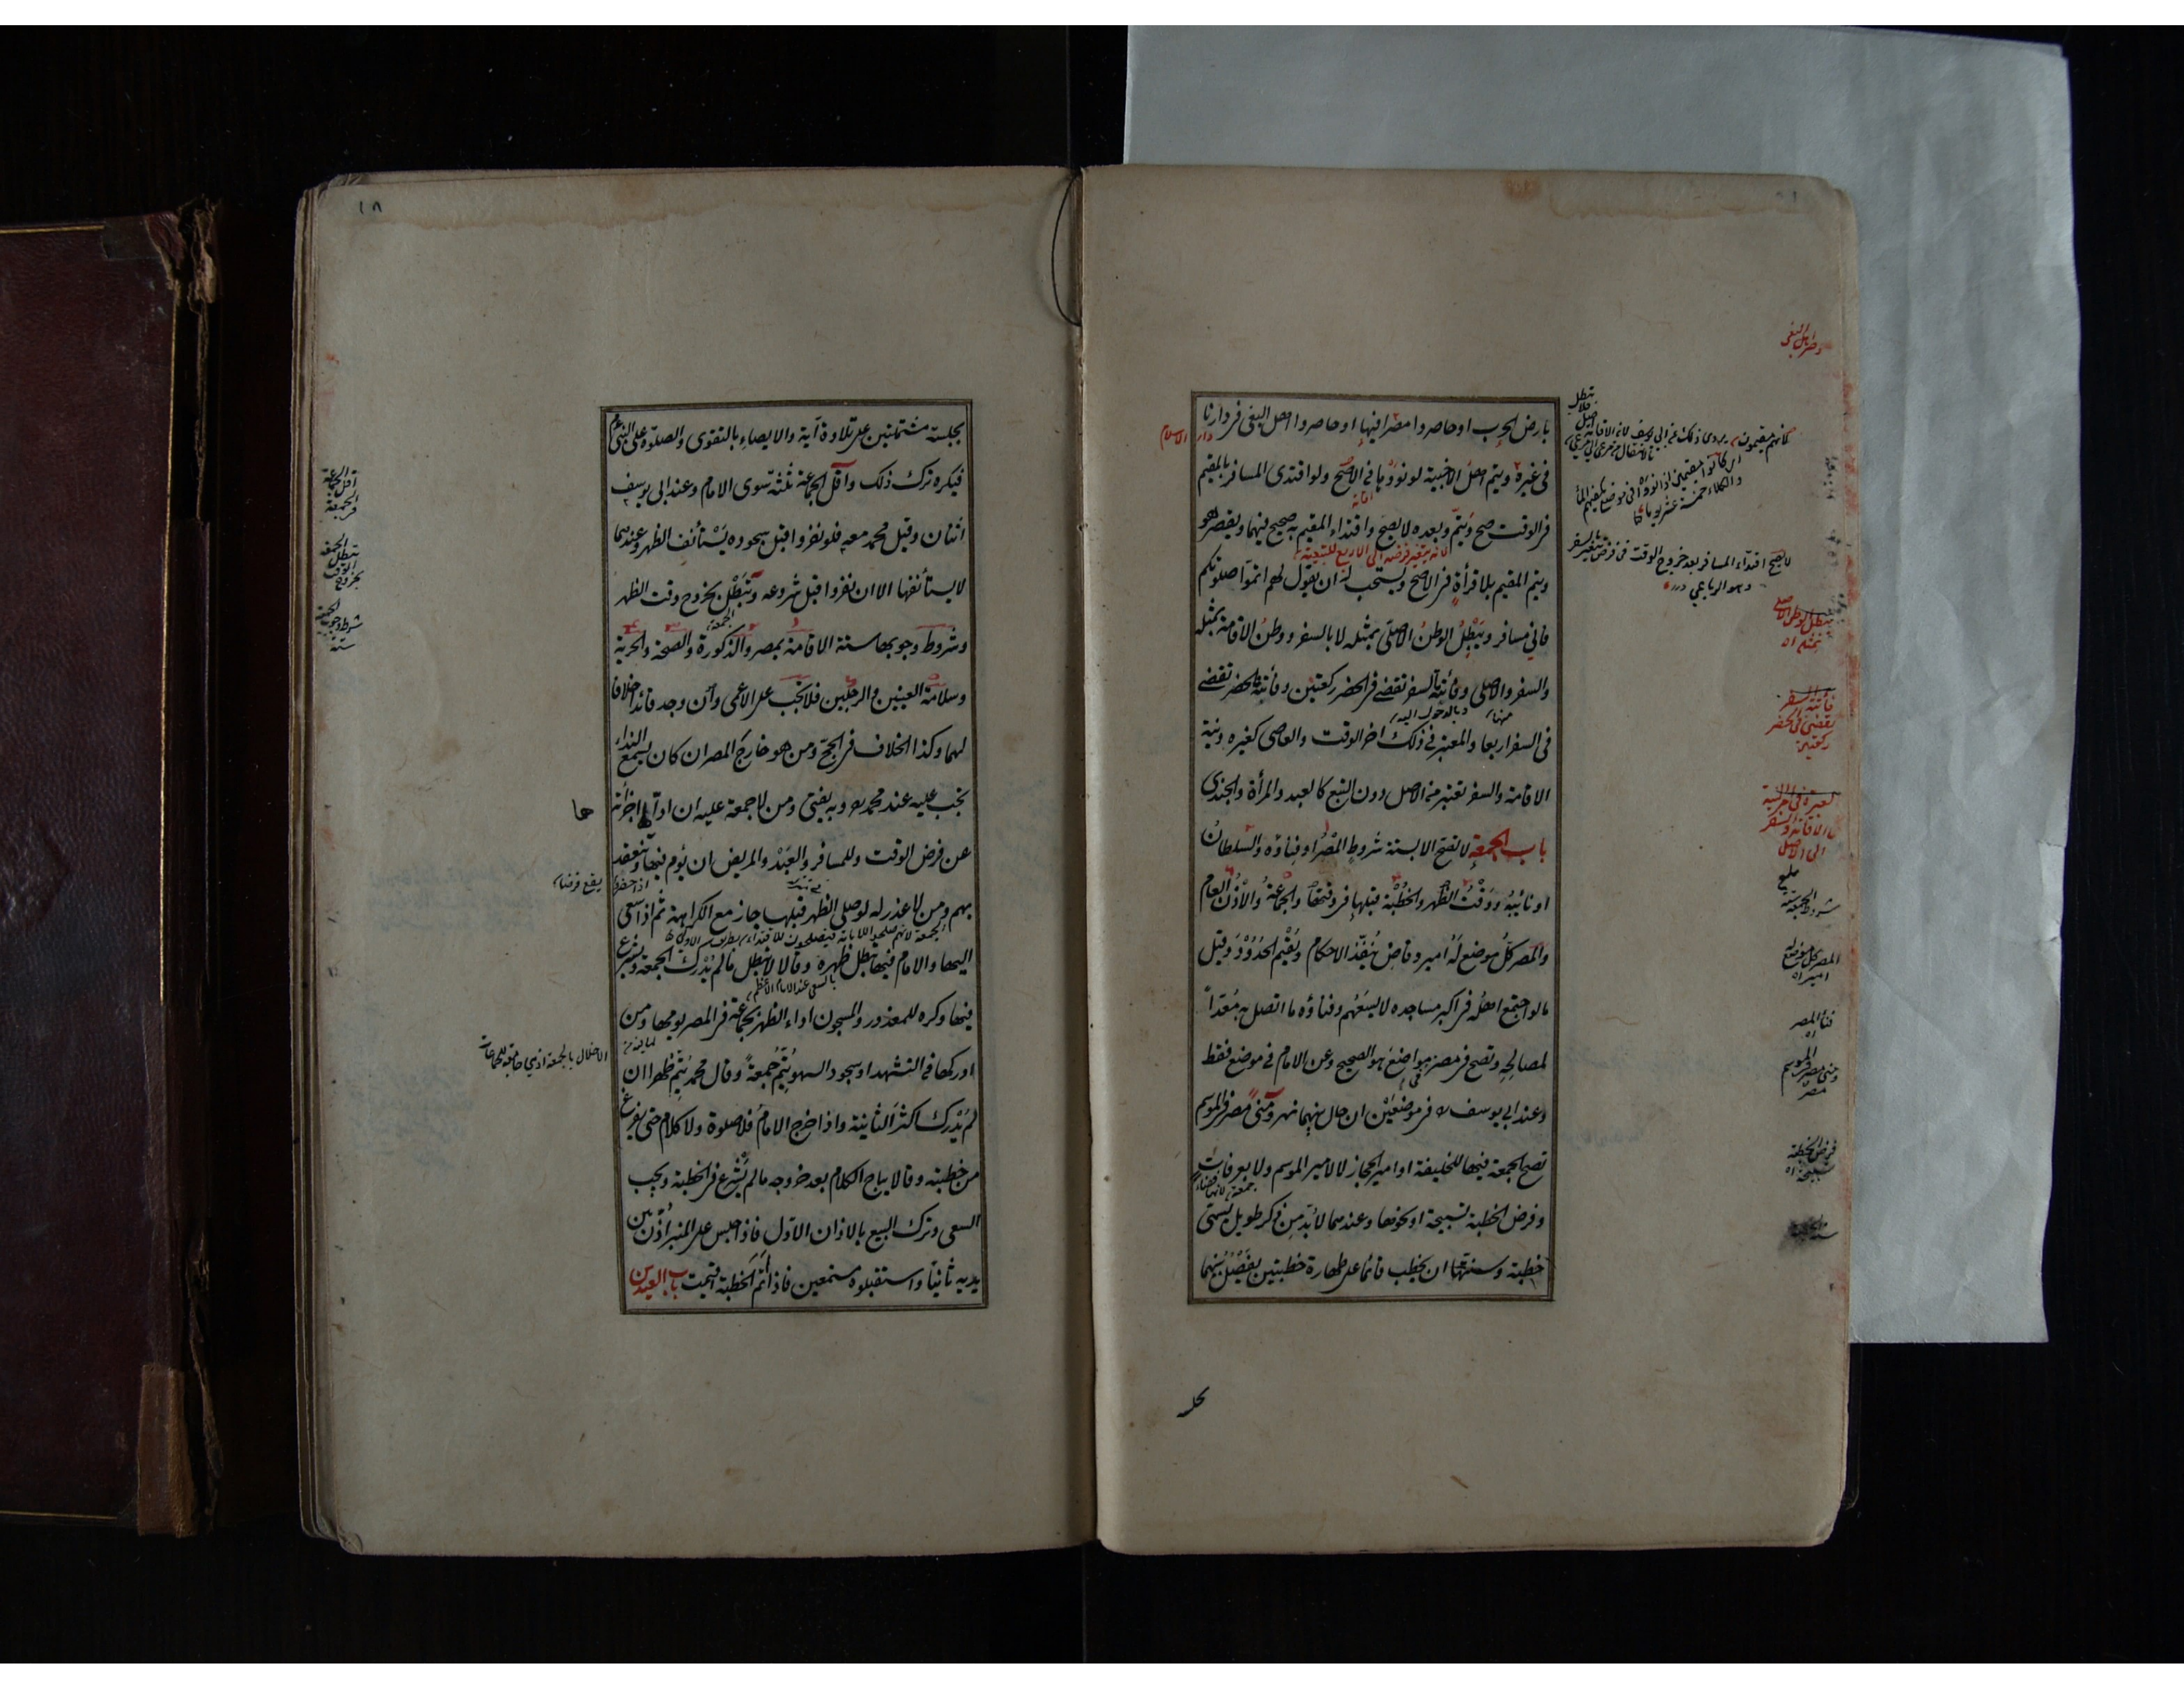 بارض الحرب او حاصروا مصرا فيها او حاصروا اهل البغى فى دارنا
فى غيره ويتم اهل الاخبية لو نووها فى الاصح ولو اقتدى المسافر بالمقيم
فى الوقت صح ويتم وبعده لا يصح واقتداء المقيم به صحيح فيهما ويقصر هو
ويتم المقيم بلا قرأة فى الاصح ويستحب له ان يقول لهم اتموا صلوتكم
فانى مسافر ويبطل الوطن الاصلى بمثله لا بالسفر ووطن الاقامة بمثله
والسفر والاصلى وفائتة السفر تقضى فى الحضر ركعتين وفائتة الحضر تقضى
فى السفر اربعا والمعتبر فى ذلك اخر الوقت والعاصى كغيره ونية
الاقامة والسفر تعتبر من الاصل دون التبع كالعبد والمرأة والجندى
باب الجمعة لا تصح الا بستة شروط المصر او فناؤه والسلطان
او نائبه ووقت الظهر والخطبة قبلها فى وقتها والجماعة والاذن العام
والمصر كل موضع له امير وقاض ينفذ الاحكام ويقيم الحدود وقيل
ما لو اجتمع اهله فى اكبر مساجده لا يسعهم وفناؤه ما اتصل به معدا
لمصالحه وتصح فى مصر فى مواضع هو الصحيح وعن الامام فى موضع فقط
وعند ابى يوسف فى موضعين ان حال بينهما نهر ومنى مصر فى الموسم
تصح الجمعة فيها للخليفة او امير الحجاز لا لامير الموسم ولا بعرفات
وفرض الخطبة تسبيحة او نحوها وعندهما لا بد من ذكر طويل يسمى
خطبة وسنتها ان يخطب قائما على طهارة خطبتين يفصل بينهما
دار الاسلام
لانه يتغير فرضه الى الاربع للتبعية
لا يصح اقتداء المسافر بعد خروج الوقت فى فرض يتغير بالسفر
وهو الرباعى درر
يبطل الوطن الاصلى
بمثله اه
فائتة السفر
تقضى فى الحضر
ركعتين
شروط الجمعة ستة
المصر كل موضع له
امير اه
فناء المصر
اه
ومنى مصر فى الموسم
فرض الخطبة
تسبيحة اه
١٨
بجلسة مشتملتين على تلاوة آية والايصاء بالتقوى والصلوة على النبى
فيكره ترك ذلك واقل الجماعة ثلثة سوى الامام وعند ابى يوسف
اثنان وقيل محمد معه فلو نفروا قبل سجوده يستأنف الظهر وعندهما
لا يستأنفها الا ان نفروا قبل شروعه وتبطل بخروج وقت الظهر
وشروط وجوبها ستة الاقامة بمصر والذكورة والصحة والحرية
وسلامة العينين والرجلين فلا تجب على الاعمى وان وجد قائدا خلافا
لهما وكذا الخلاف فى الحج ومن هو خارج المصر ان كان يسمع النداء
تجب عليه عند محمد وبه يفتى ومن لا جمعة عليه ان اداها اجزأته
عن فرض الوقت وللمسافر والعبد والمريض ان يؤم فيها وتنعقد
بهم ومن لا عذر له لو صلى الظهر قبلها جاز مع الكراهة ثم اذا سعى
اليها والامام فيها تبطل ظهره وقالا لا تبطل مالم يدرك الجمعة ويشرع
فيها وكره للمعذور والمسجون اداء الظهر بجماعة فى المصر يومها ومن
ادركها فى التشهد او سجود السهو يتم جمعة وقال محمد يتم ظهرا ان
لم يدرك اكثر الثانية واذا خرج الامام فلا صلوة ولا كلام حتى يفرغ
من خطبته وقالا يباح الكلام بعد خروجه مالم يشرع فى الخطبة ويجب
السعى وترك البيع بالاذان الاول فاذا جلس على المنبر اذن بين
يديه ثانيا واستقبلوه مستمعين فاذا اتم الخطبة اقيمت باب العيدين
اقل الجماعة
فى الجمعة
تبطل الجمعة
بخروج الوقت
شروط وجوب الجمعة
ستة
ها
يقع فرضا